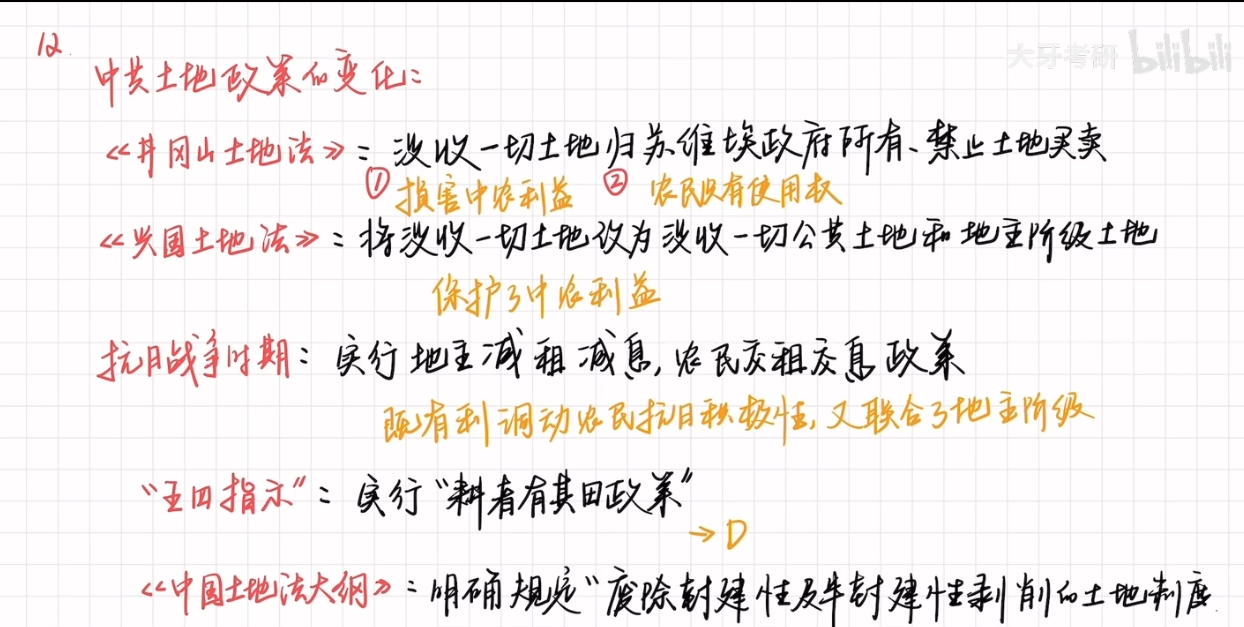 大牙考研 bilibili
12.
中共土地政策的变化：
《井冈山土地法》：没收一切土地归苏维埃政府所有、禁止土地买卖
①损害中农利益 ②农民没有使用权
《兴国土地法》：将没收一切土地改为没收一切公共土地和地主阶级土地
保护了中农利益
抗日战争时期：实行地主减租减息，农民交租交息政策
既有利调动农民抗日积极性，又联合了地主阶级
“五四指示”：实行“耕者有其田政策”
→D
《中国土地法大纲》：明确规定“废除封建性及半封建性剥削的土地制度